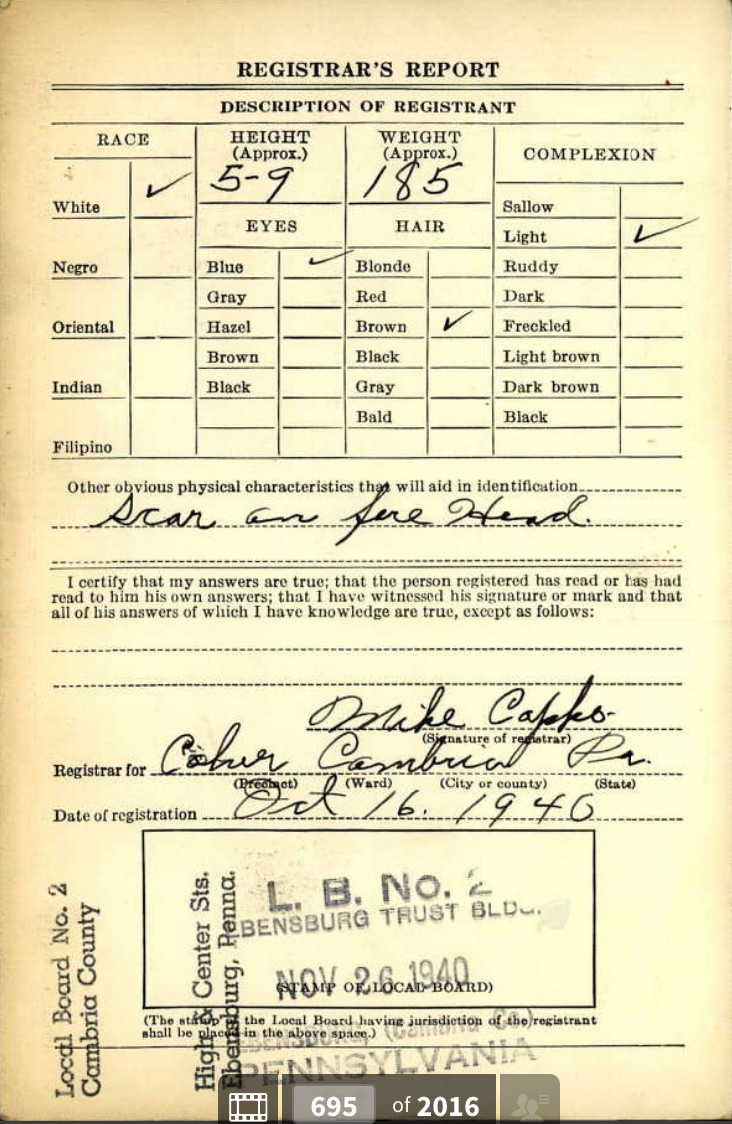 REGISTRAR'S REPORT
DESCRIPTION OF REGISTRANT
RACE
HEIGHT
(Approx.)
WEIGHT
(Approx.)
COMPLEXION
5-9
185
White ✓
Sallow
EYES
HAIR
Light ✓
Negro
Blue ✓
Blonde
Ruddy
Gray
Red
Dark
Oriental
Hazel
Brown ✓
Freckled
Brown
Black
Light brown
Indian
Black
Gray
Dark brown
Bald
Black
Filipino
Other obvious physical characteristics that will aid in identification
Scar on fore Head.
I certify that my answers are true; that the person registered has read or has had
read to him his own answers; that I have witnessed his signature or mark and that
all of his answers of which I have knowledge are true, except as follows:
Mike Cappo
(Signature of registrar)
Registrar for Cambria Pa.
(Precinct) (Ward) (City or county) (State)
Date of registration Oct 16. 1940
L. B. No. 2
EBENSBURG TRUST BLDG.
NOV 26 1940
(STAMP OF LOCAL BOARD)
(The stamp of the Local Board having jurisdiction of the registrant
shall be placed in the above space.)
EBENSBURG, (Cambria Co.)
PENNSYLVANIA
Local Board No. 2
Cambria County
High & Center Sts.
Ebensburg, Penna.
695 of 2016